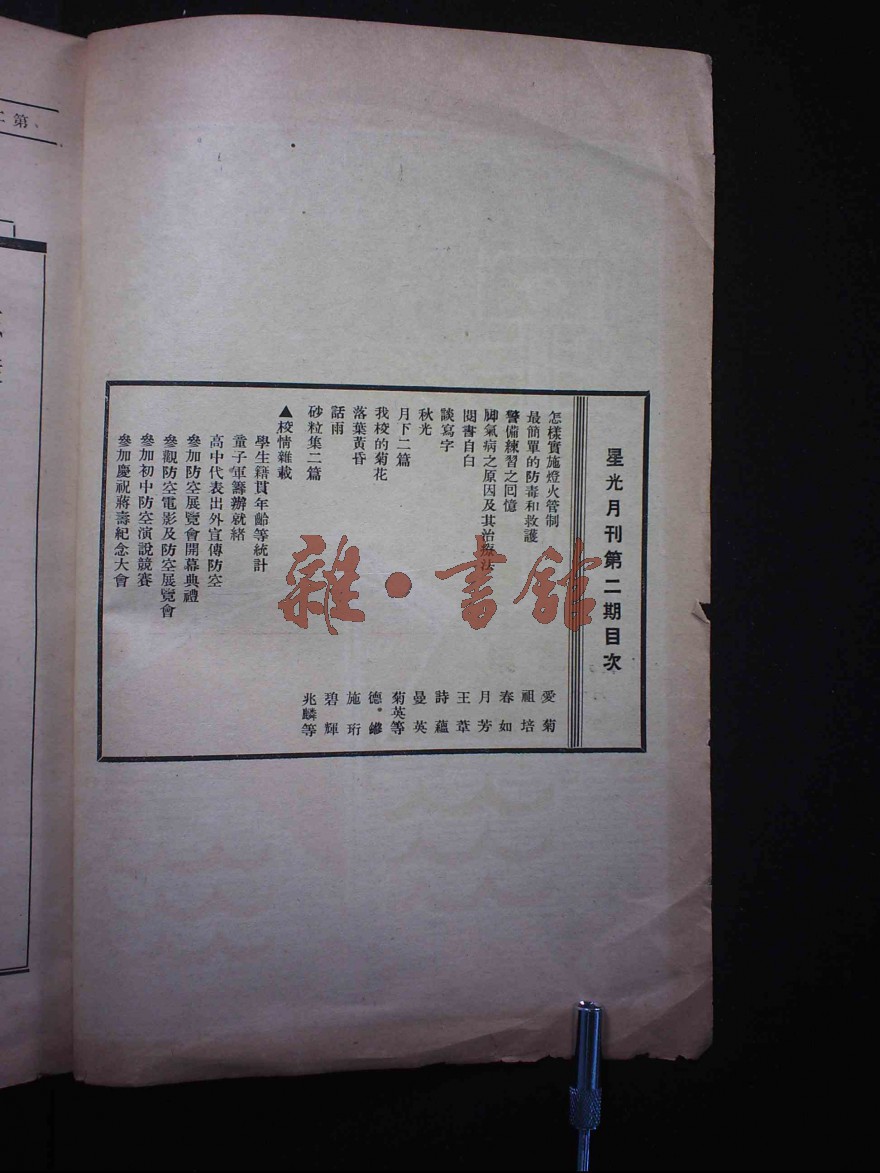 星光月刊第二期目次
怎樣實施燈火管制 愛菊
最簡單的防毒和救護 祖培
警備練習之回憶 春如
脚氣病之原因及其治療法 月芳
閱書自白 王葦
談寫字 詩蘊
秋光 曼英
月下二篇 菊英等
我校的菊花 德
落葉黃昏 施珩
話雨 碧輝
砂粒集二篇 兆麟等
▲校情雜載
學生籍貫年齡等統計
童子軍籌辦就緒
高中代表出外宣傳防空
參加防空展覽會開幕典禮
參觀防空電影及防空展覽會
參加初中防空演說競賽
參加慶祝蔣壽紀念大會
雜·書館
第